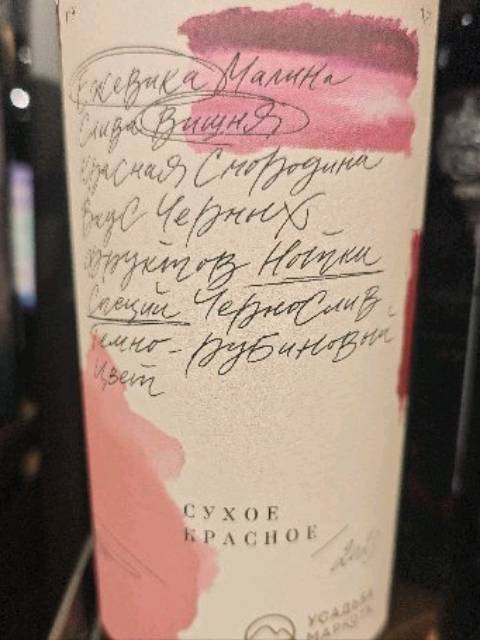 Ежевика Малина
Слива Вишня
Красная Смородина
Вкус Черных
фруктов Нотки
Специй Чернослив
Темно-рубиновый
Цвет
СУХОЕ
КРАСНОЕ
УСАДЬБА
МАРКОТХ